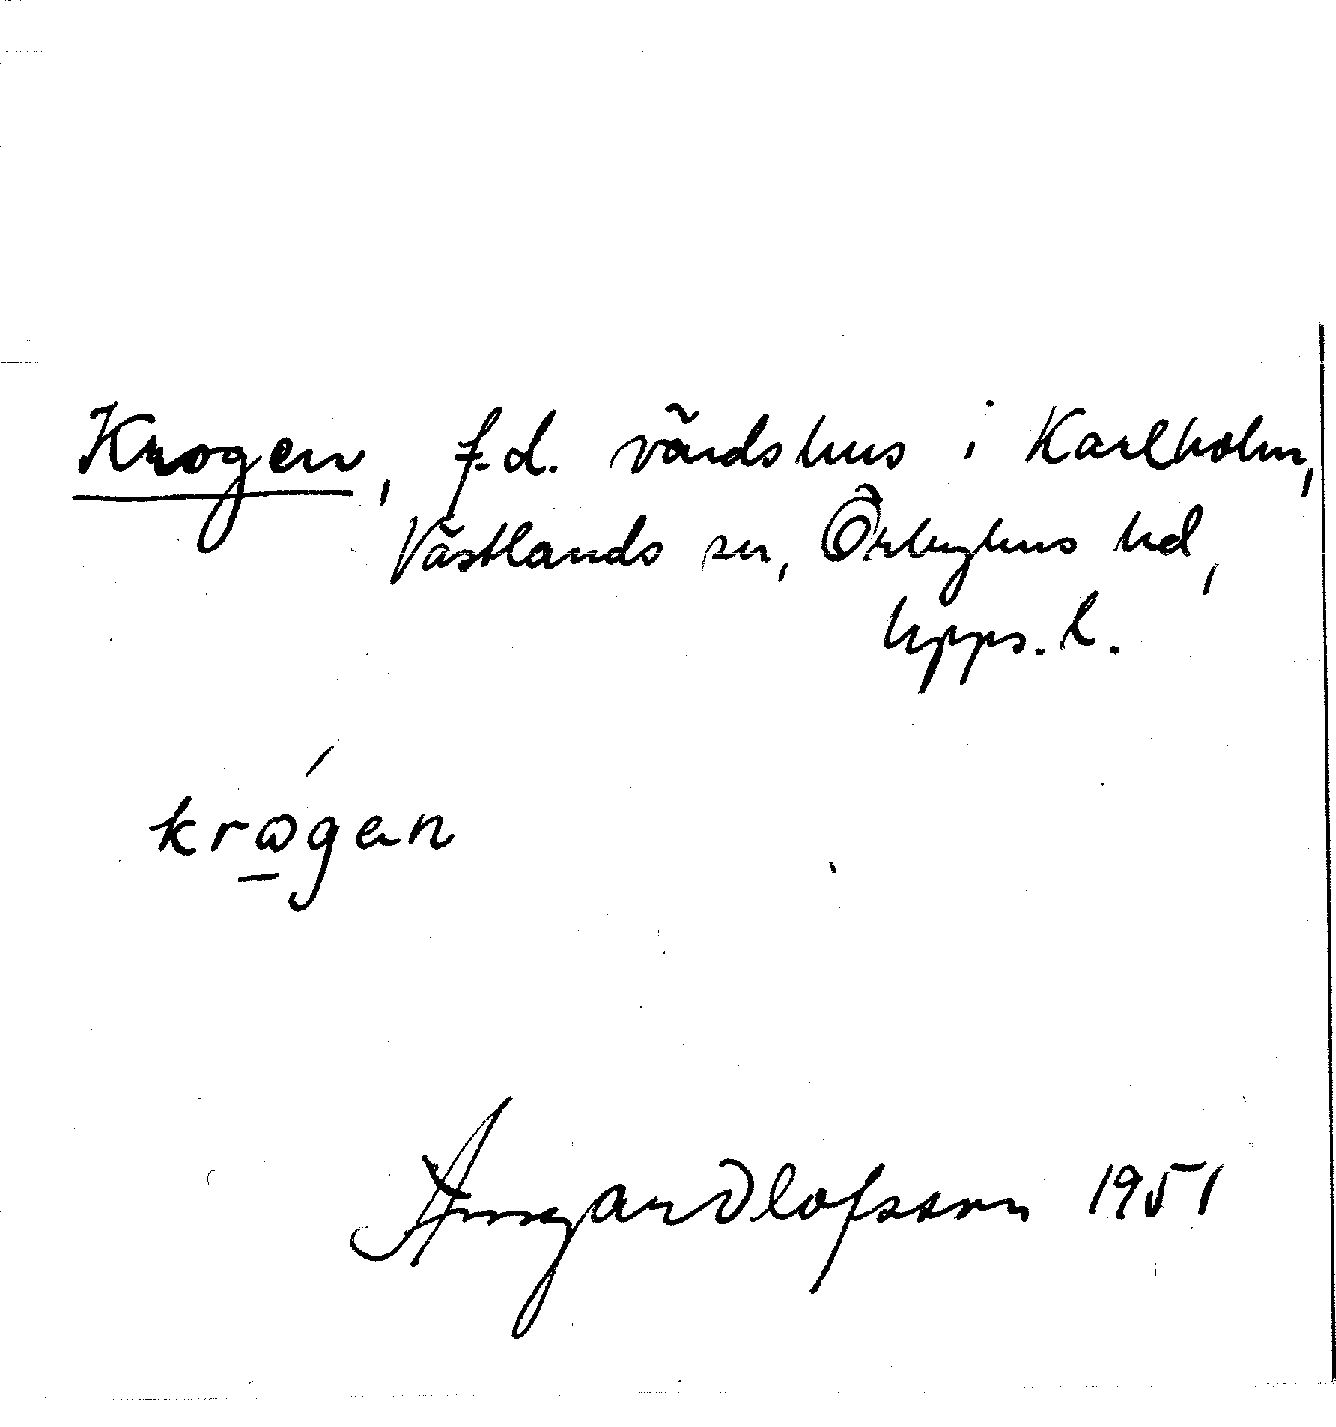 Krogen, f.d. värdshus i Karlholm,
Västlands sn, Örbyhus hd,
Upps. l.
krωgen
Ansgar Olofsson 1951